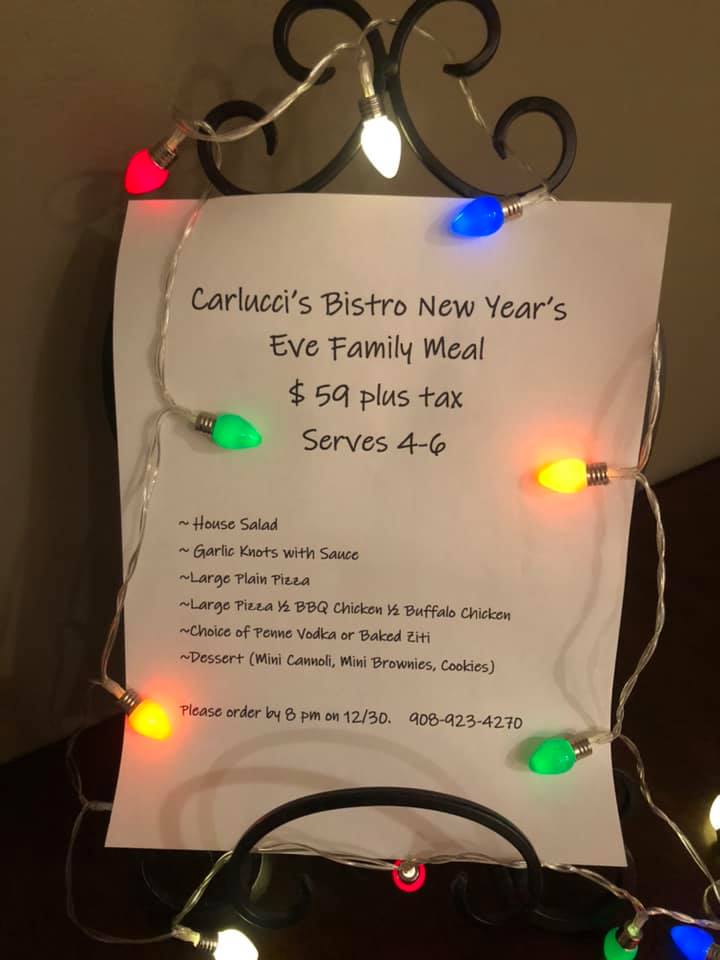 Carlucci's Bistro New Year's
Eve Family Meal
$ 59 plus tax
Serves 4-6
~ House Salad
~ Garlic Knots with Sauce
~Large Plain Pizza
~Large Pizza ½ BBQ Chicken ½ Buffalo Chicken
~Choice of Penne Vodka or Baked Ziti
~Dessert (Mini Cannoli, Mini Brownies, Cookies)
Please order by 8 pm on 12/30. 908-923-4270